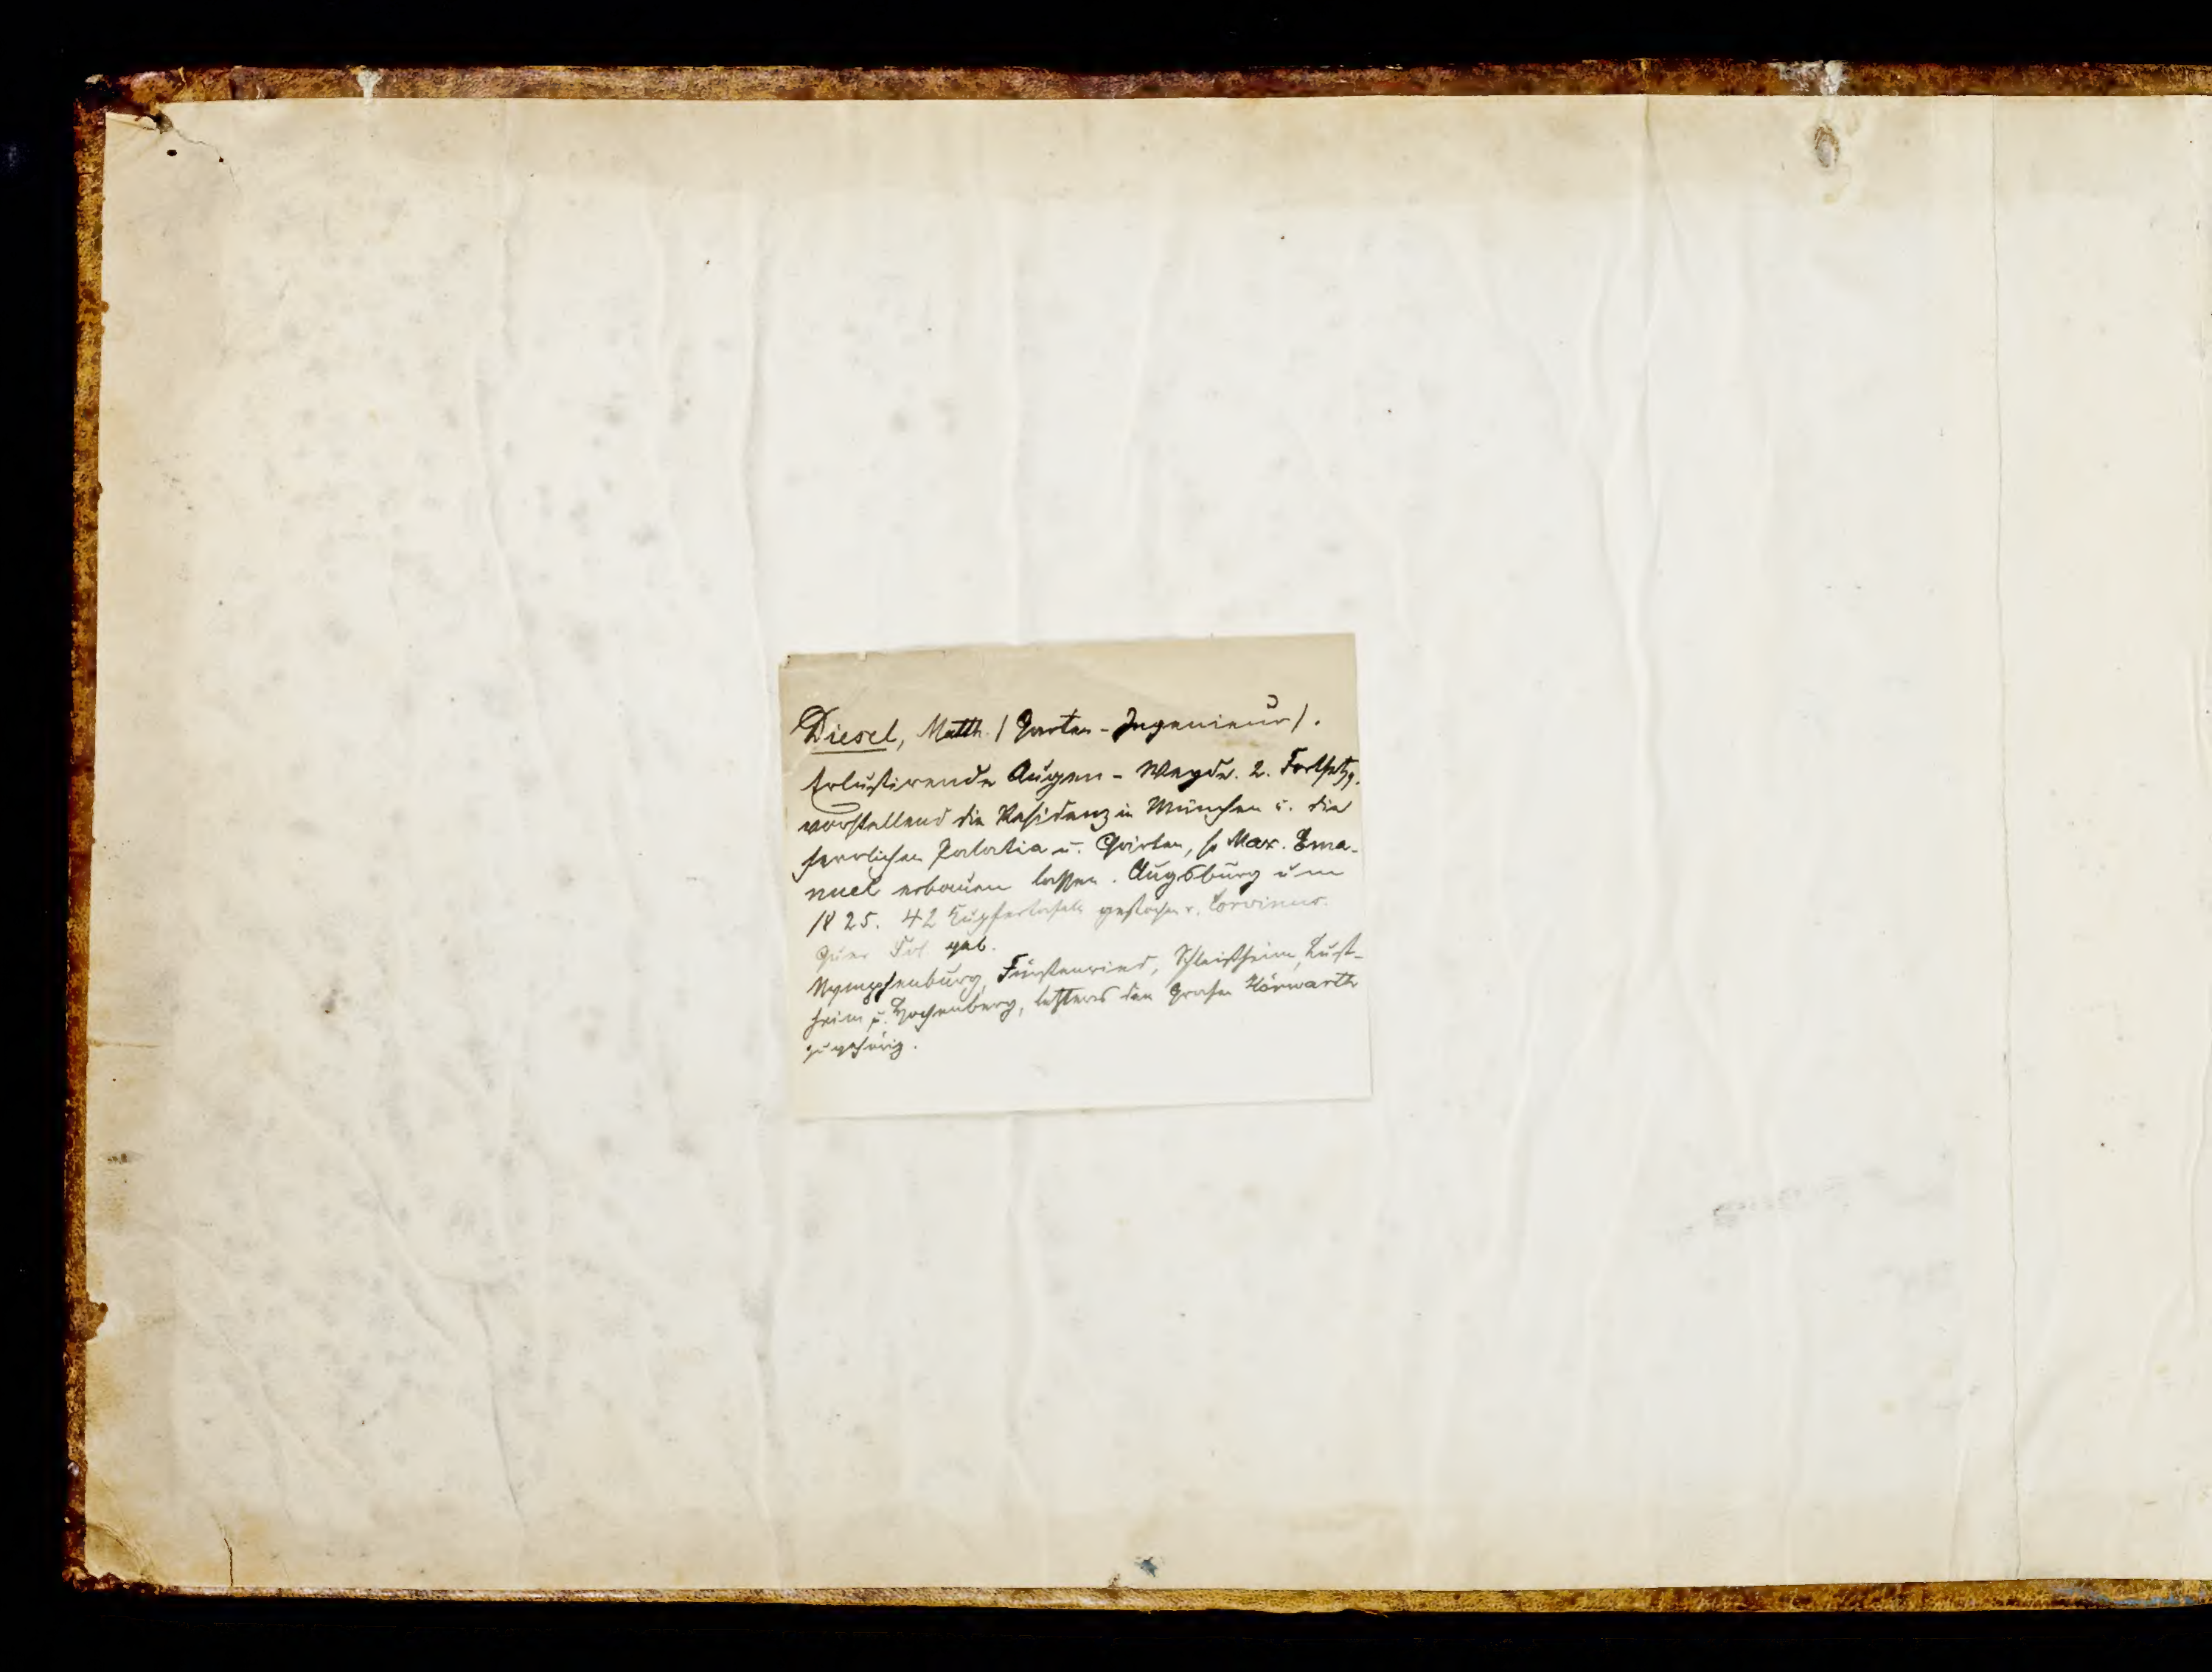 Diesel, Matth. (Garten-Ingenieur).
Erlustirende Augen-Weyde. 2. Fortsetzg.
vorstellend die Residenz in München u. die
herrlichen Palatia u. Gärten, so Max. Ema-
nuel erbauen lassen. Augsburg um
1825. 42 Kupfertafeln gestochen v. Corvinus.
Quer Fol. geb.
Nymphenburg, Fürstenried, Schleißheim, Lust-
heim u. Hochenberg, letzteres den Grafen Hörwarth
zugehörig.